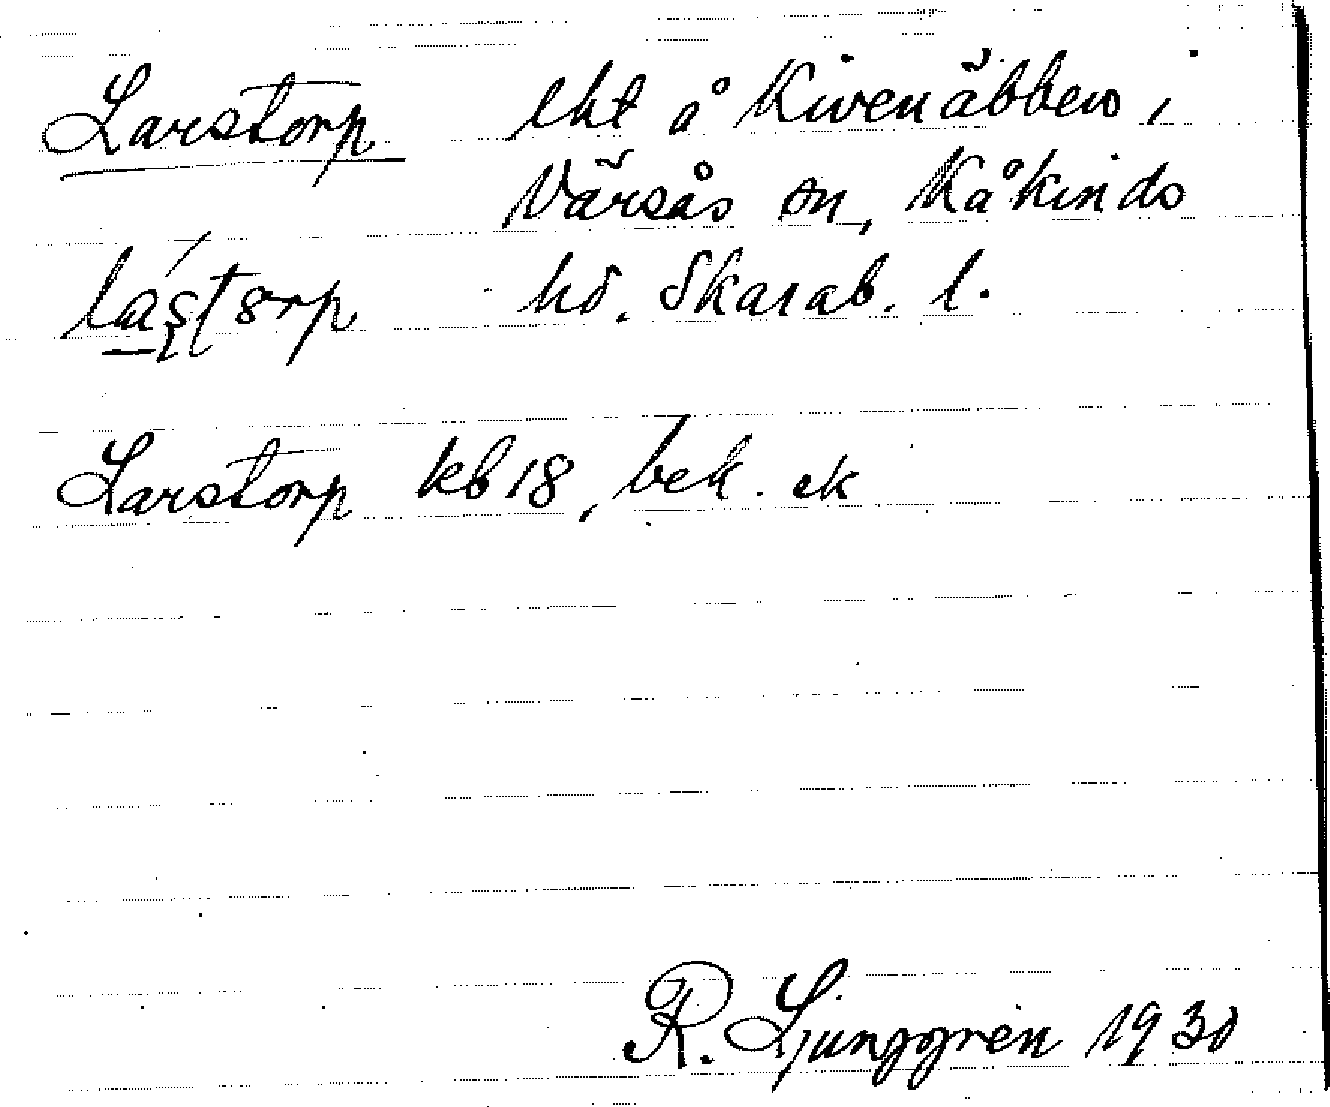 Larstorp lht å Kivenäbben i
Värsås sn, Kåkinds
hd. Skarab. l.
Larstorp kb 18, bek. ek
R. Ljunggren 1930